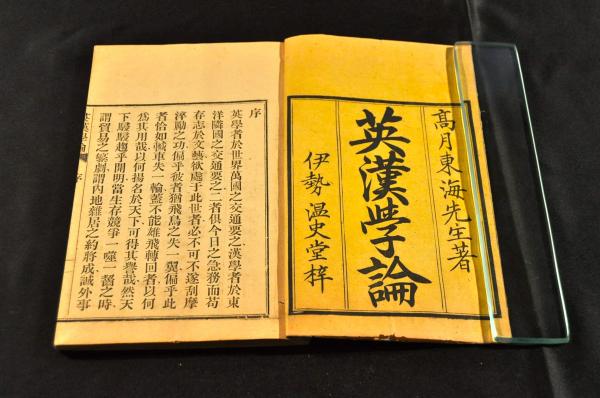 髙月東海先生著
英漢学論
伊勢 温史堂梓
序
英學者於世界萬國之交通要之漢學者於東
洋隣國之交通要之二者俱今日之急務而苟
存志於文藝欲處于此世者必不可不遂刮摩
淬勵之功偏乎彼者猶飛鳥之失一翼偏乎此
者恰如輾車失一輪蓋不能雄飛轉回者以何
爲其用哉以何揚名於天下可得其譽哉然天
下駸駸趨乎開明當生存競爭一噓一瞥之時
謂貿易之繁劇謂內地雜居之約將成誠外事